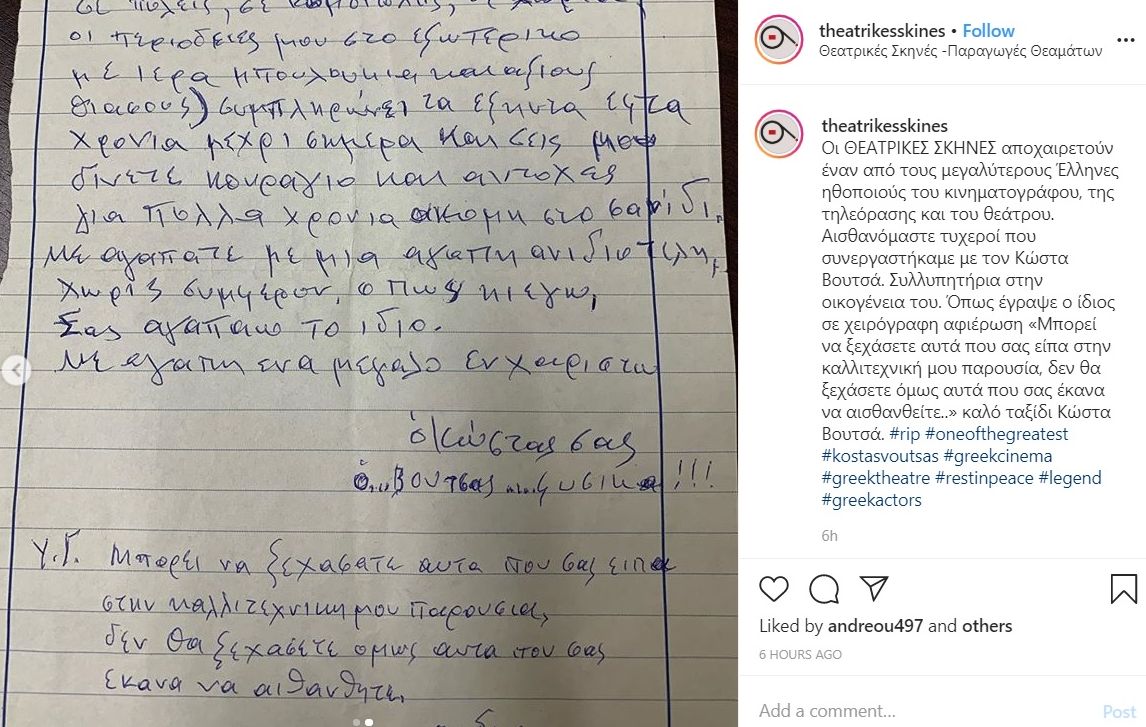 οι περιοδειες μου στο εξωτερικο
με ιερα μπουλουκια και αξιους
θιασους) συμπληρωνει τα εξηντα εφτα
χρονια μεχρι σημερα και σεις μου
δινετε κουραγιο και αντοχες
για πολλα χρονια ακομη στο σανιδι,
με αγαπατε με μια αγαπη ανιδιοτελη,
χωρις συμφερον, οπως κι εγω,
Σας αγαπαω το ιδιο.
Με αγαπη ενα μεγαλο ευχαριστω
ὁ Κώστας σας
ὁ... Βουτσας .... φυσικα !!!
Υ.Γ. Μπορει να ξεχασατε αυτα που σας ειπα
στην καλλιτεχνικη μου παρουσια,
δεν θα ξεχασετε ομως αυτα που σας
εκανα να αισθανθητε.
theatrikesskines • Follow
Θεατρικές Σκηνές -Παραγωγές Θεαμάτων
theatrikesskines
Οι ΘΕΑΤΡΙΚΕΣ ΣΚΗΝΕΣ αποχαιρετούν
έναν από τους μεγαλύτερους Έλληνες
ηθοποιούς του κινηματογράφου, της
τηλεόρασης και του θεάτρου.
Αισθανόμαστε τυχεροί που
συνεργαστήκαμε με τον Κώστα
Βουτσά. Συλλυπητήρια στην
οικογένεια του. Όπως έγραψε ο ίδιος
σε χειρόγραφη αφιέρωση «Μπορεί
να ξεχάσετε αυτά που σας είπα στην
καλλιτεχνική μου παρουσία, δεν θα
ξεχάσετε όμως αυτά που σας έκανα
να αισθανθείτε..» καλό ταξίδι Κώστα
Βουτσά. #rip #oneofthegreatest
#kostasvoutsas #greekcinema
#greektheatre #restinpeace #legend
#greekactors
6h
Liked by andreou497 and others
6 HOURS AGO
Add a comment...
Post